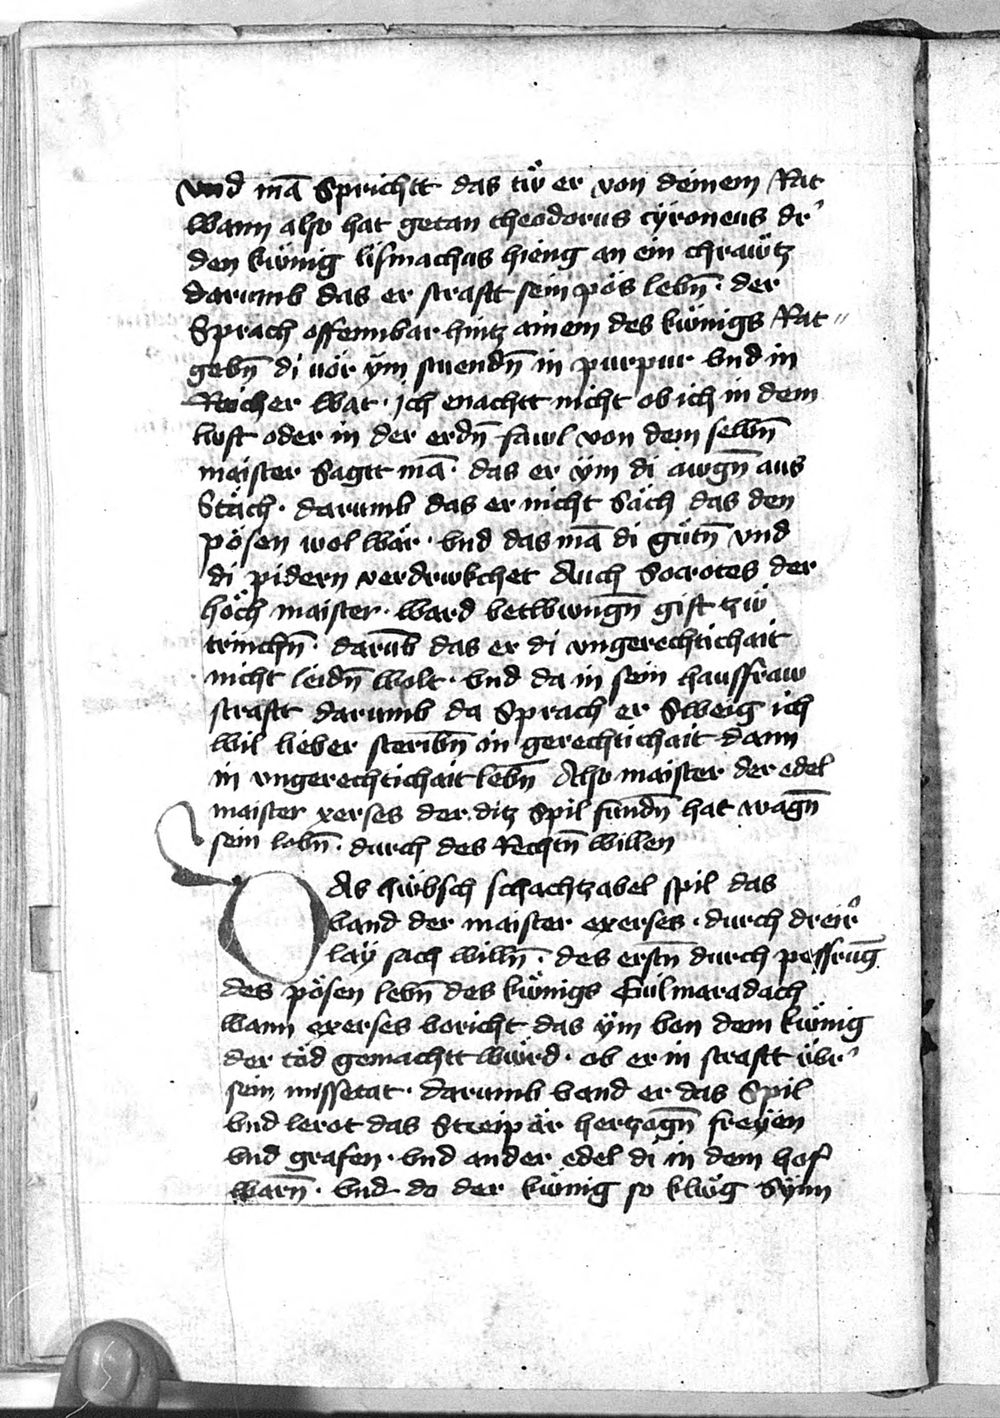 vnd mā Sprichtt das tẅ er von deinem Rat
wann also hat getan theodorus tÿroneus dr᾽
den kwͤnig lismachus hieng an ein chrawͤtz
darumb das er straftt sein pös lebn̄ · der
Sprach offennbar hintz ainem des kwͤnigs Rat〃
gebn̄ di vor ÿm stuendn̄ in purpur vnd in
Reicher wat · ich enachtt nicht ob ich in dem
luft oder in der erdn̄ fawl von dem selbn̄
maister Sagtt mā · das er ÿm di awgn̄ aus
Stäch · darumb das er nicht Säch das den
pösen wol wär · vnd das mā di gütn̄ vnd
di pidern verdrwkchet Auch Socrotes der
höch maister · ward betwungn̄ gift tzẅ
trinchn̄ · darūb das er di vngerechtichait
nicht leidn̄ wolt · vnd da in sein hausfraw
straftt darumb da Sprach er Sweig ich
wil lieber sterībn̄ in gerechtichait dann
in vngerechtichait lebn̄ Also maister der edel
maister xerses der ditz Spil fundn̄ hat wagn̄
sein lebn̄ · durch des Rechtn̄ willen
DAs hẅbsch schachtzabel spil das
vand der maister exerses · durch dreir᾽
lay sach willn̄ · des erstn̄ durch pessrūg
des pösen lebn̄ des kwͤnigs Euilmaradach
wann exerses voricht das ÿm von dem kwͤnig
der töd gemachtt wurd · ob er in straftt ẅbr᾽
sein missetat · darumb vand er das Spil
vnd lerot das Streipär hertzogn̄ freÿen
vnd grafen · vnd ander edel di in dem hof
warn̄ · vnd do der kwͤnig so klwͤg Synn